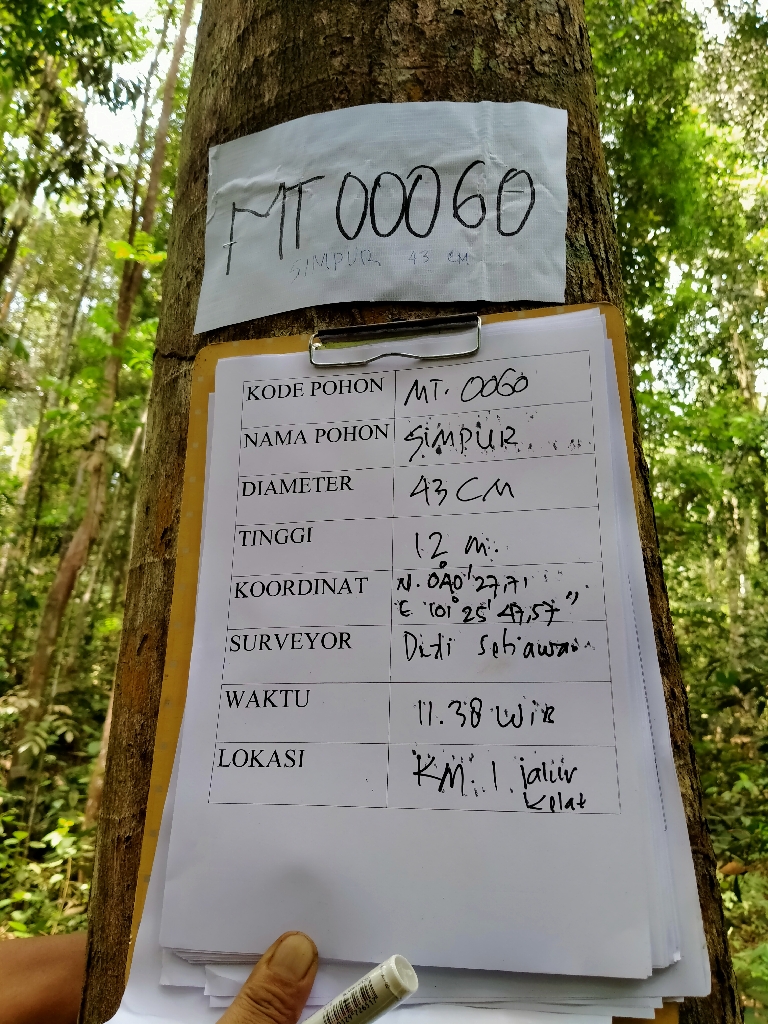 MT 00060
SIMPUR 43 CM
KODE POHON MT. 0060
NAMA POHON SIMPUR
DIAMETER 43 CM
TINGGI 12 m.
KOORDINAT N. 0°40'27,71
E 101° 25' 47,57"
SURVEYOR Didi Setiawan
WAKTU 11.38 WIB
LOKASI KM. 1. jalur
kelat